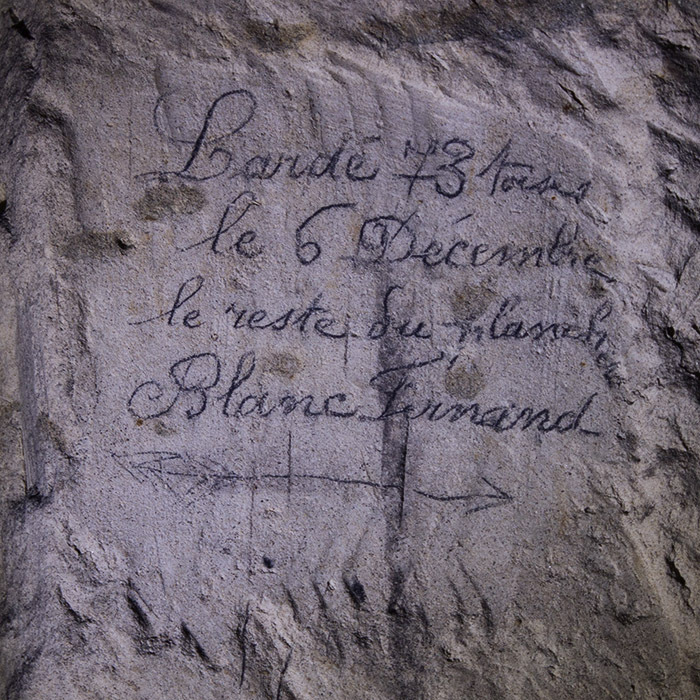 Lardé 73 toises
le 6 Décembre
le reste du plancher
Blanc Fernand